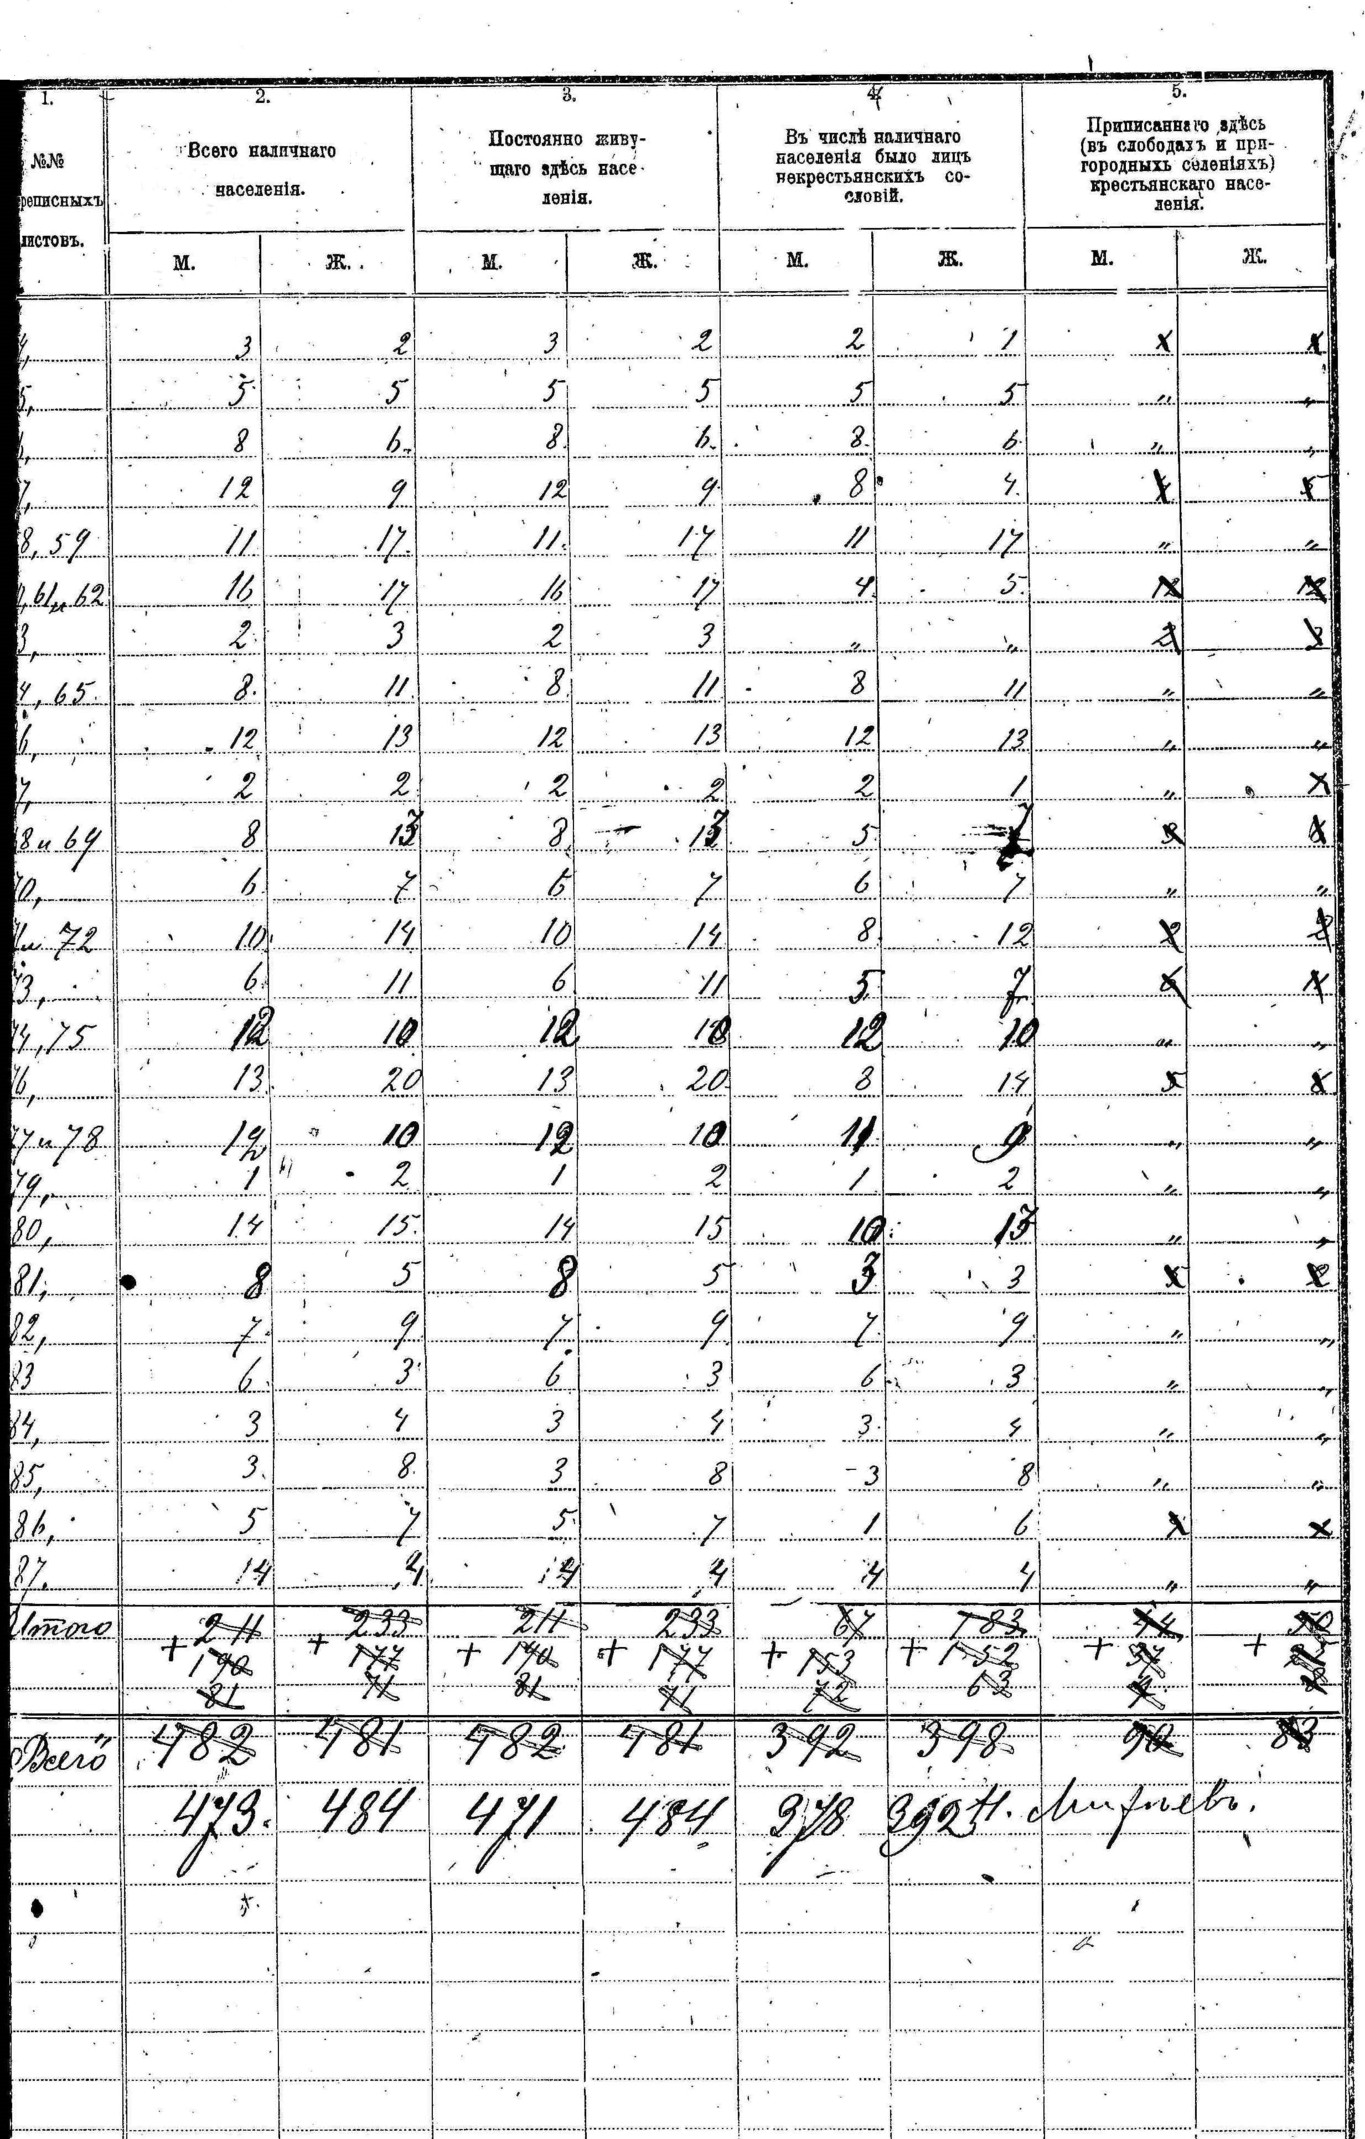 1. 2. 3. 4. 5.
№№
реписныхъ
листовъ.
Всего наличнаго
населенія.
Постоянно живу-
щаго здѣсь насе-
ленія.
Въ числѣ наличнаго
населенія было лицъ
некрестьянскихъ со-
словій.
Приписаннаго здѣсь
(въ слободахъ и при-
городныхъ селеніяхъ)
крестьянскаго насе-
ленія.
М. Ж. М. Ж. М. Ж. М. Ж.
4, 3 2 3 2 2 1
5, 5 5 5 5 5 5 „ „
6, 8 6 8 6 8 6 „ „
7, 12 9 12 9 8 4 4 5
8, 59 11 17 11 17 11 17 „ „
61 и 62 16 17 16 17 4 5 12 12
3, 2 3 2 3 „ „ 2 3
4, 65 8 11 8 11 8 11 „ „
6, 12 13 12 13 12 13 „ „
7, 2 2 2 2 2 1 „
8 и 69 8 13 8 13 5 7 3
70, 6 7 6 7 6 7 „ „
71 и 72 10 14 10 14 8 12 2 2
73, 6 11 6 11 5 7
74, 75 12 10 12 10 12 10 „ „
76, 13 20 13 20 8 14 5
77 и 78 12 10 12 10 11 9 „ „
79, 1 2 1 2 1 2 „ „
80, 14 15 14 15 10 13 „ „
81, 8 5 8 5 3 3 5 2
82, 7 9 7 9 7 9 „ „
83 6 3 6 3 6 3 „ „
84, 3 4 3 4 3 4 „ „
85, 3 8 3 8 3 8 „ „
86, 5 7 5 7 1 6
87. 14 4 14 4 4 4 „ „
Итого 211 233 211 233 67 183 44
+ 190 + 177 + 190 + 177 + 153 + 152 + 37 +
81 71 81 71 72 63 9
Всего 482 481 482 481 392 398 90 83
473. 484 471 484 378 392 Н.